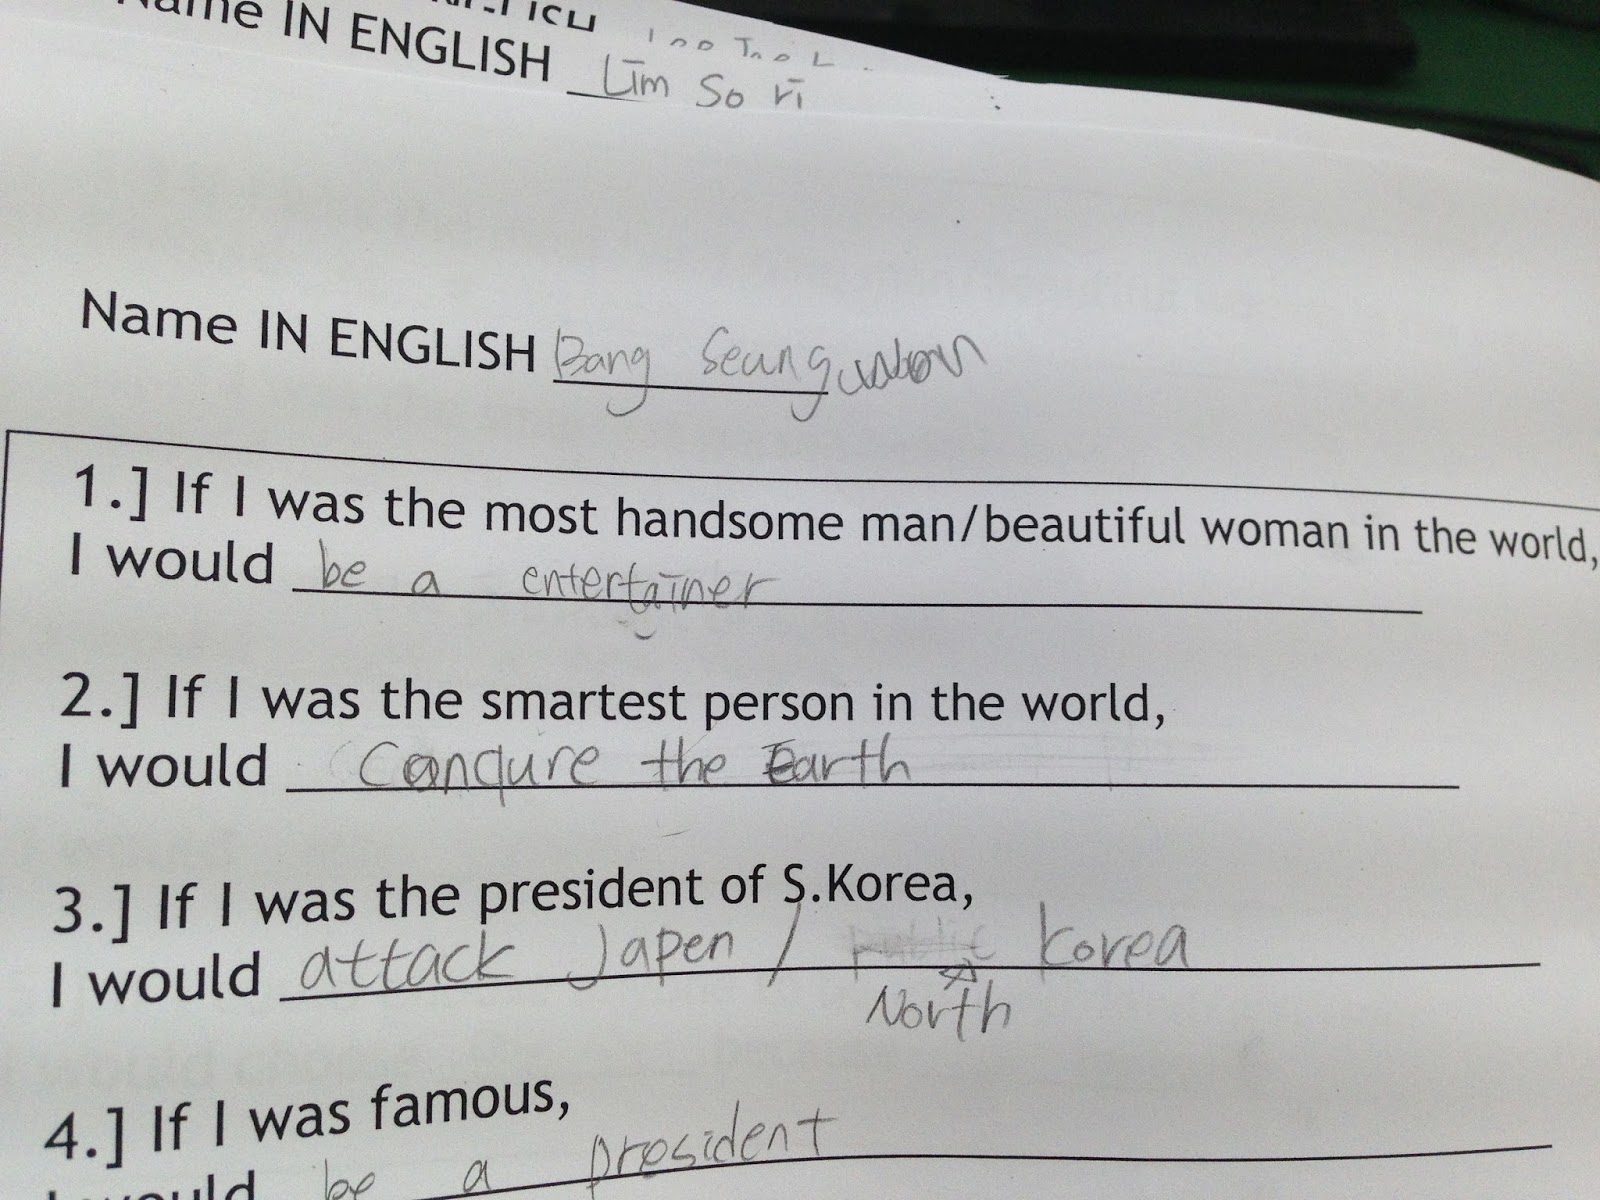 Name IN ENGLISH Lim So ri
Name IN ENGLISH Bang Seung
1.] If I was the most handsome man/beautiful woman in the world,
I would be a entertainer
2.] If I was the smartest person in the world,
I would Conqure the Earth
3.] If I was the president of S.Korea,
I would attack Japen / Korea
North
4.] If I was famous,
I would be a president